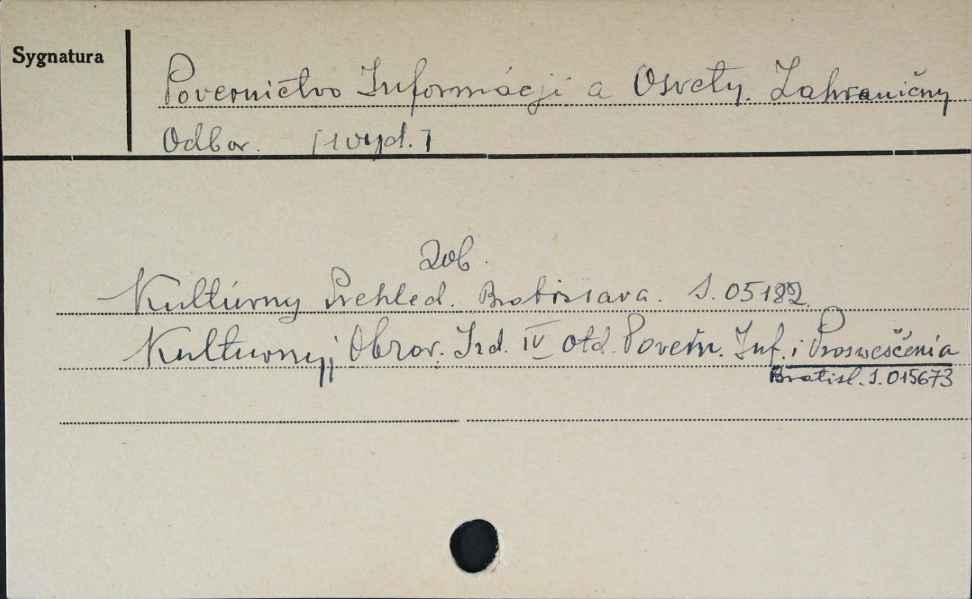 Sygnatura
Povernictvo Informácji a Osvety. Zahraničny
Odbor. [1 wyd.]
Zob.
Kultúrny Prehled. Bratislava. S. 05182
Kulturnyj Obzor. Izd. IV otd. Poverń. Inf. i Proswesčenia
Bratisl. S. 015673